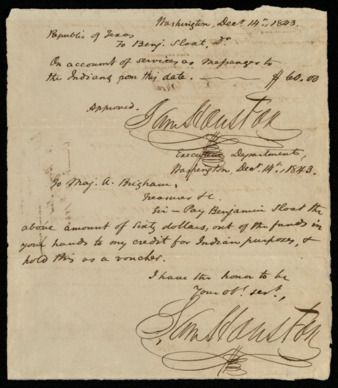 Washington, Decr. 14th, 1843.
Republic of Texas
To Benj. Sloat, Dr.
On account of services as messenger to
the Indians from this date. $60.00
Approved.
Sam Houston
Executive Department,
Washington, Decr. 14th, 1843.
To Maj. A. Brigham,
Treasurer &c.
Sir – Pay Benjamin Sloat the
above amount of sixty dollars, out of the funds in
your hands to my credit for Indian purposes, &
hold this as a voucher.
I have the honor to be
Your obt. servt.,
Sam Houston